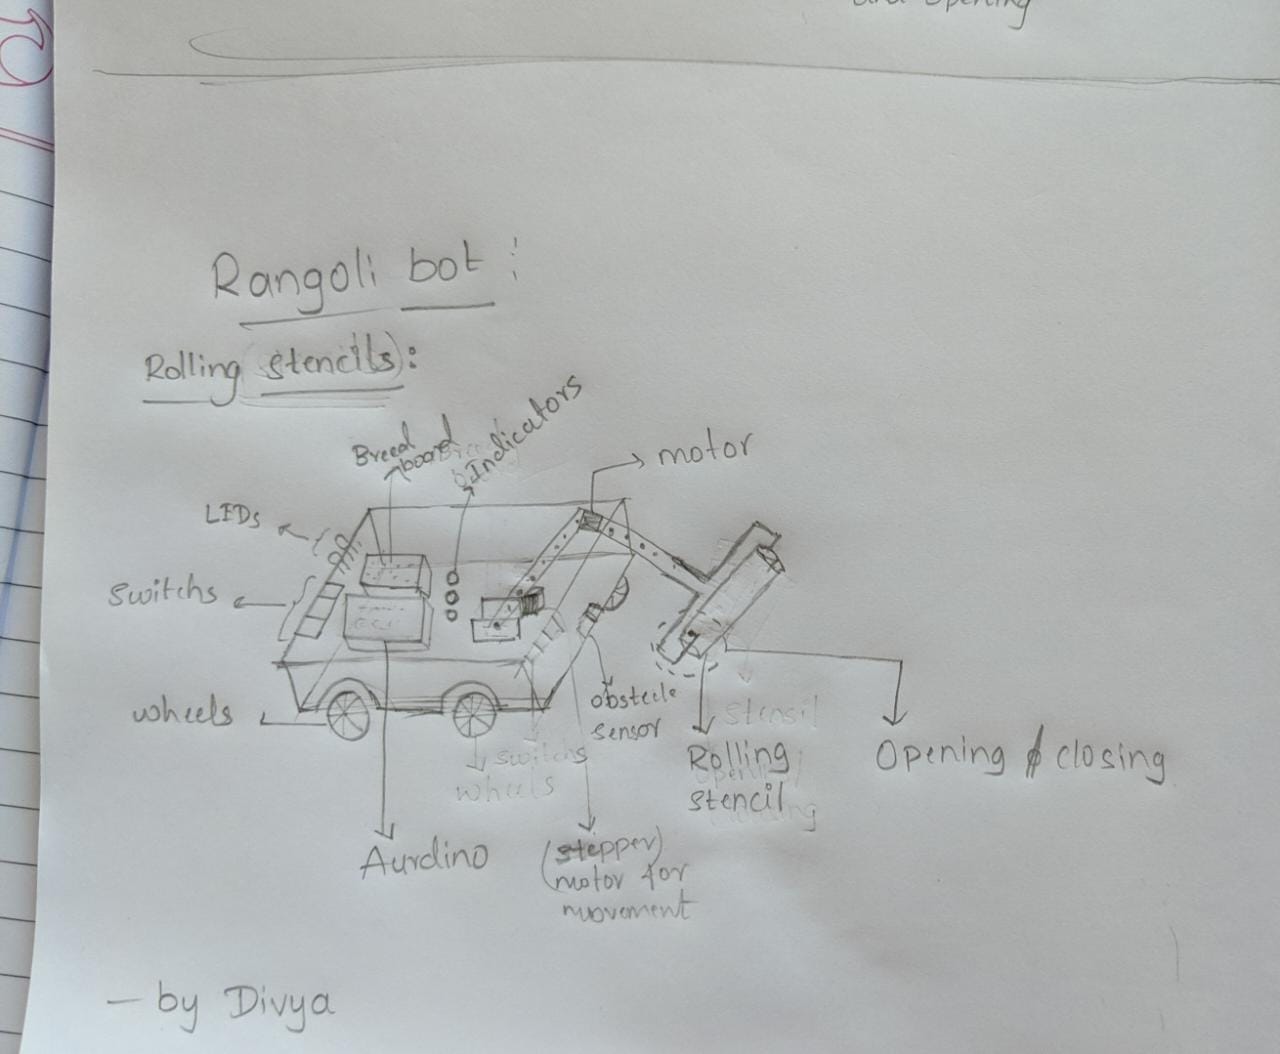 and Opening
Rangoli bot :
Rolling (stencils):
Breed
board
Indicators
motor
LEDs
Switchs
wheels
obstecle
sensor
stensil
switchs
wheels
Rolling
stencil
Opening & closing
Aurdino
(stepper)
motor for
movement
— by Divya